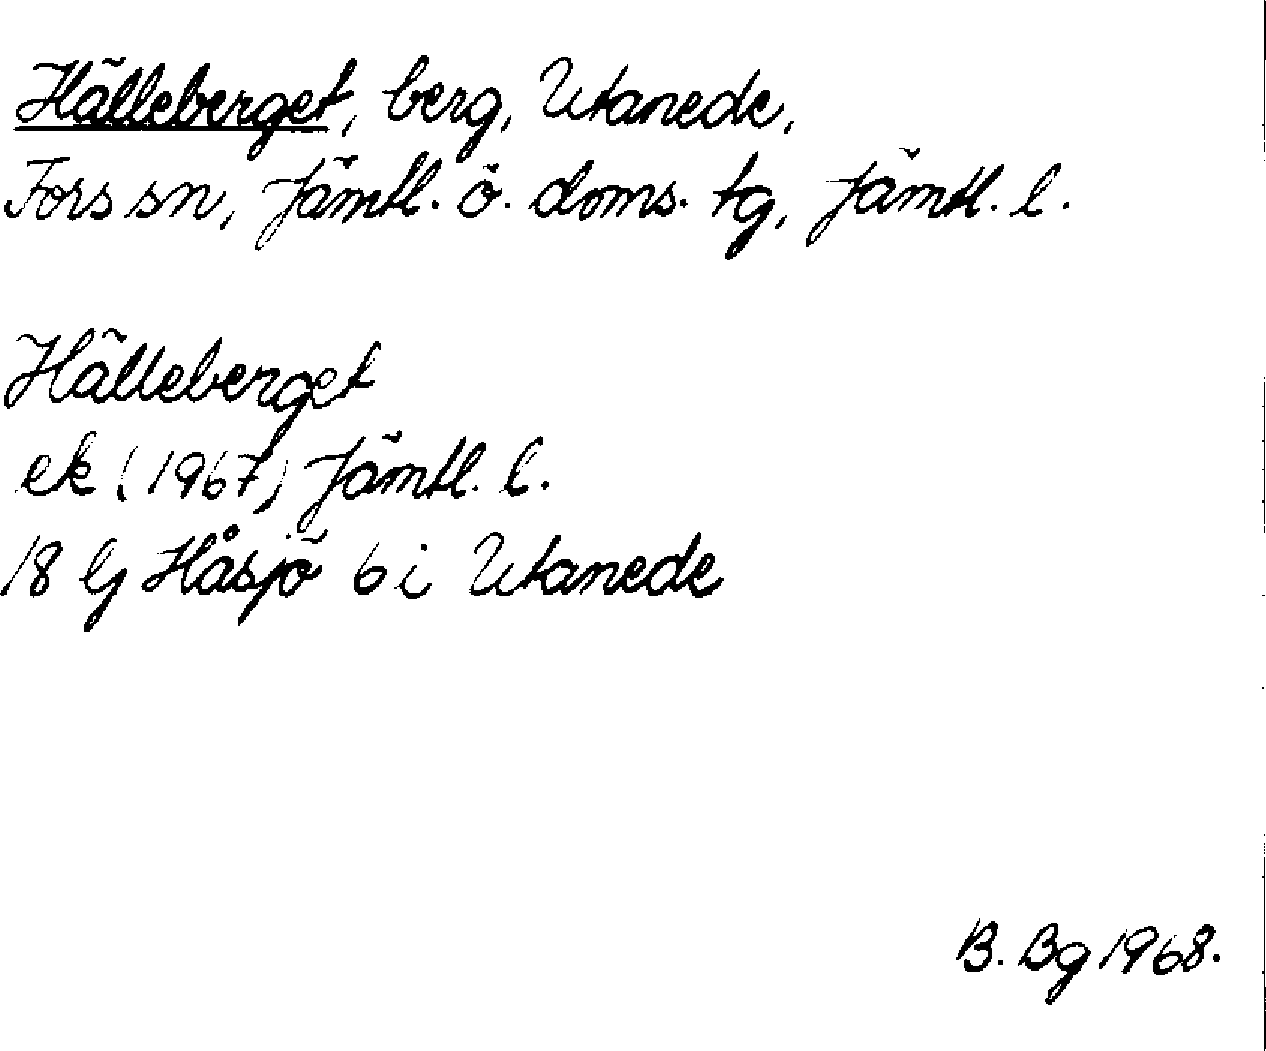 Hälleberget, berg, Utanede,
Fors sn, Jämtl. ö. doms. tg, Jämtl. l.
Hälleberget
ek (1967) Jämtl. l.
18 Gj Håsjö 6 i Utanede
B. Bg 1968.